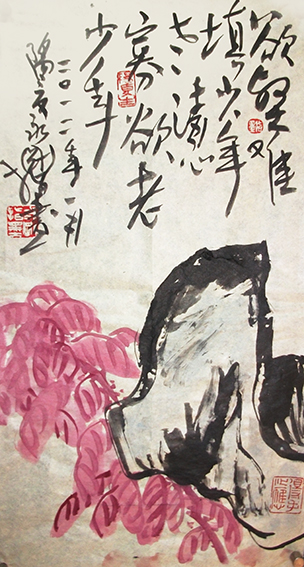 欲壑难
填少年
老清心
寡欲老
少年
二〇一二年一月